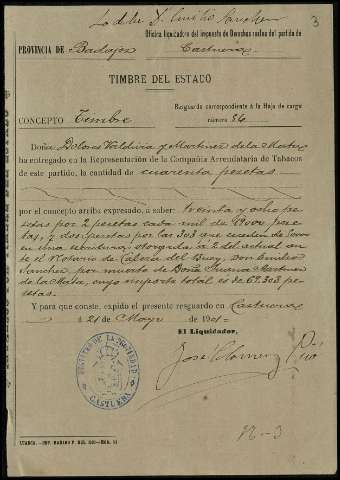 La de D. Emilio Sanchez
3
Oficina liquidadora del impuesto de Derechos reales del partido de
PROVINCIA DE Badajoz Castuera
TIMBRE DEL ESTADO
Resguardo correspondiente á la Hoja de cargo
CONCEPTO Timbre número 84
DOÑA Dolores Valdivia y Martinez de la Mata
ha entregado en la Representación de la Compañía Arrendataria de Tabacos
de este partido, la cantidad de cuarenta pesetas
por el concepto arriba expresado, á saber: treinta y ocho pe
setas por 2 pesetas cada mil de pese
tas, y dos pesetas por las 303 que exceden de
en una escritura otorgada á 2 del actual an
te el Notario de Cabeza del Buey, Don Emilio
Sanchez por muerte de Doña Juana Martinez
de la Mata, cuyo importe total es de 69.303 pe
setas.
Y para que conste, expido el presente resguardo en Castuera
á 21 de Mayo de 1901
El Liquidador,
José
REGISTRO DE LA PROPIEDAD
CASTUERA
N-3